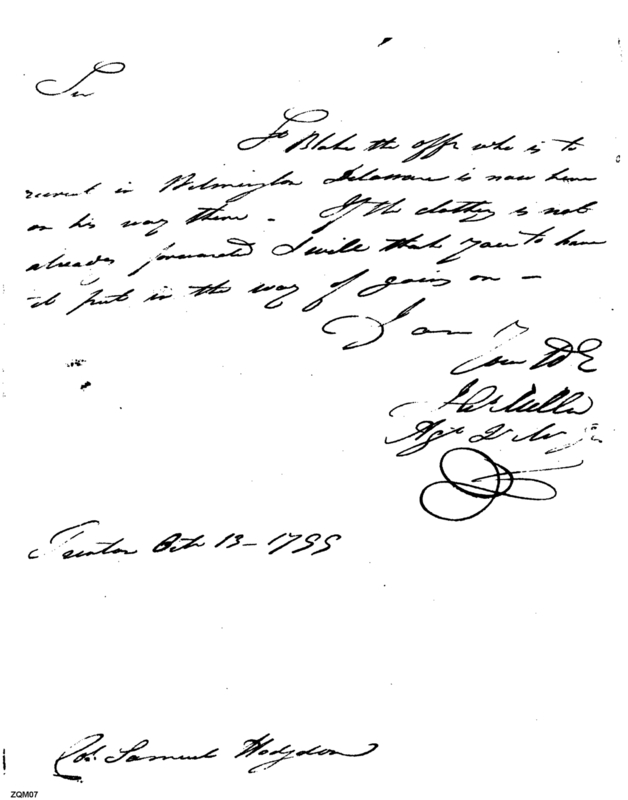 Sir
Lt Blake the offr who is to
recruit in Wilmington Delaware is now here
on his way there - If the clothing is not
already forwarded I will thank you to have
it put in the way of going on -
I am
Your
Jas Miller
Agt Q M
Trenton Octr 13 - 1799
Col. Samuel Hodgdon
ZQM07